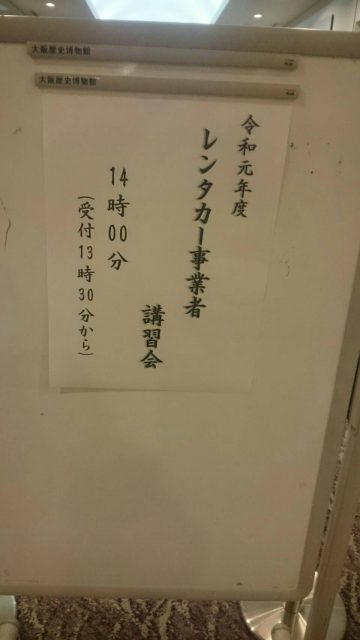 大阪歴史博物館
大阪歴史博物館
令和元年度
レンタカー事業者
講習会
14時00分
(受付13時30分から)